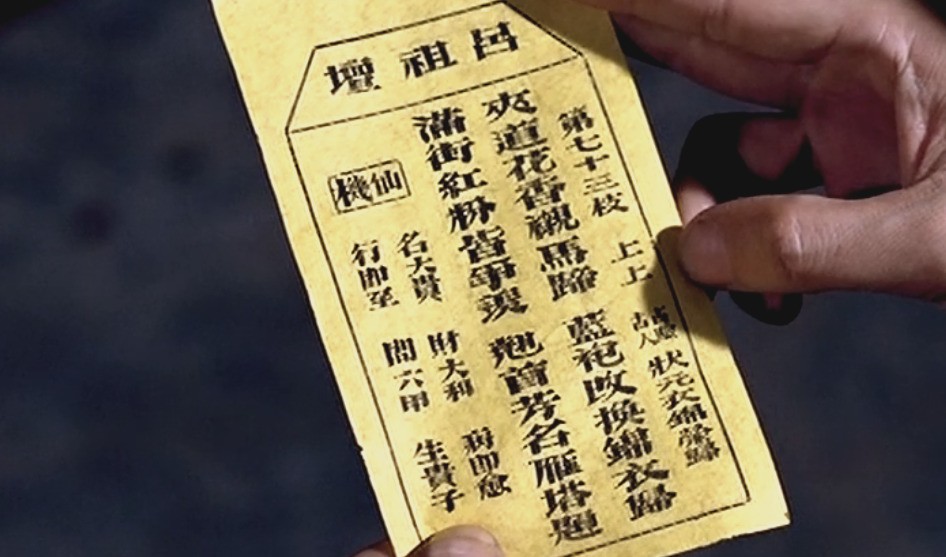 呂祖壇
第七十三枝 上上 狀元衣錦榮歸
夾道花香襯馬蹄 藍袍改換錦衣歸
滿街紅粉皆爭羨 魁首芳名雁塔題
仙機
名大貴 財大利 病即愈
行即至 問六甲 生貴子